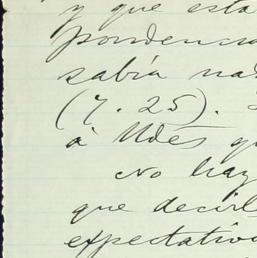 y que esta
pondencia
sabía nad
(7.25).
á Udés qu
No hay
que decirl
expectativa